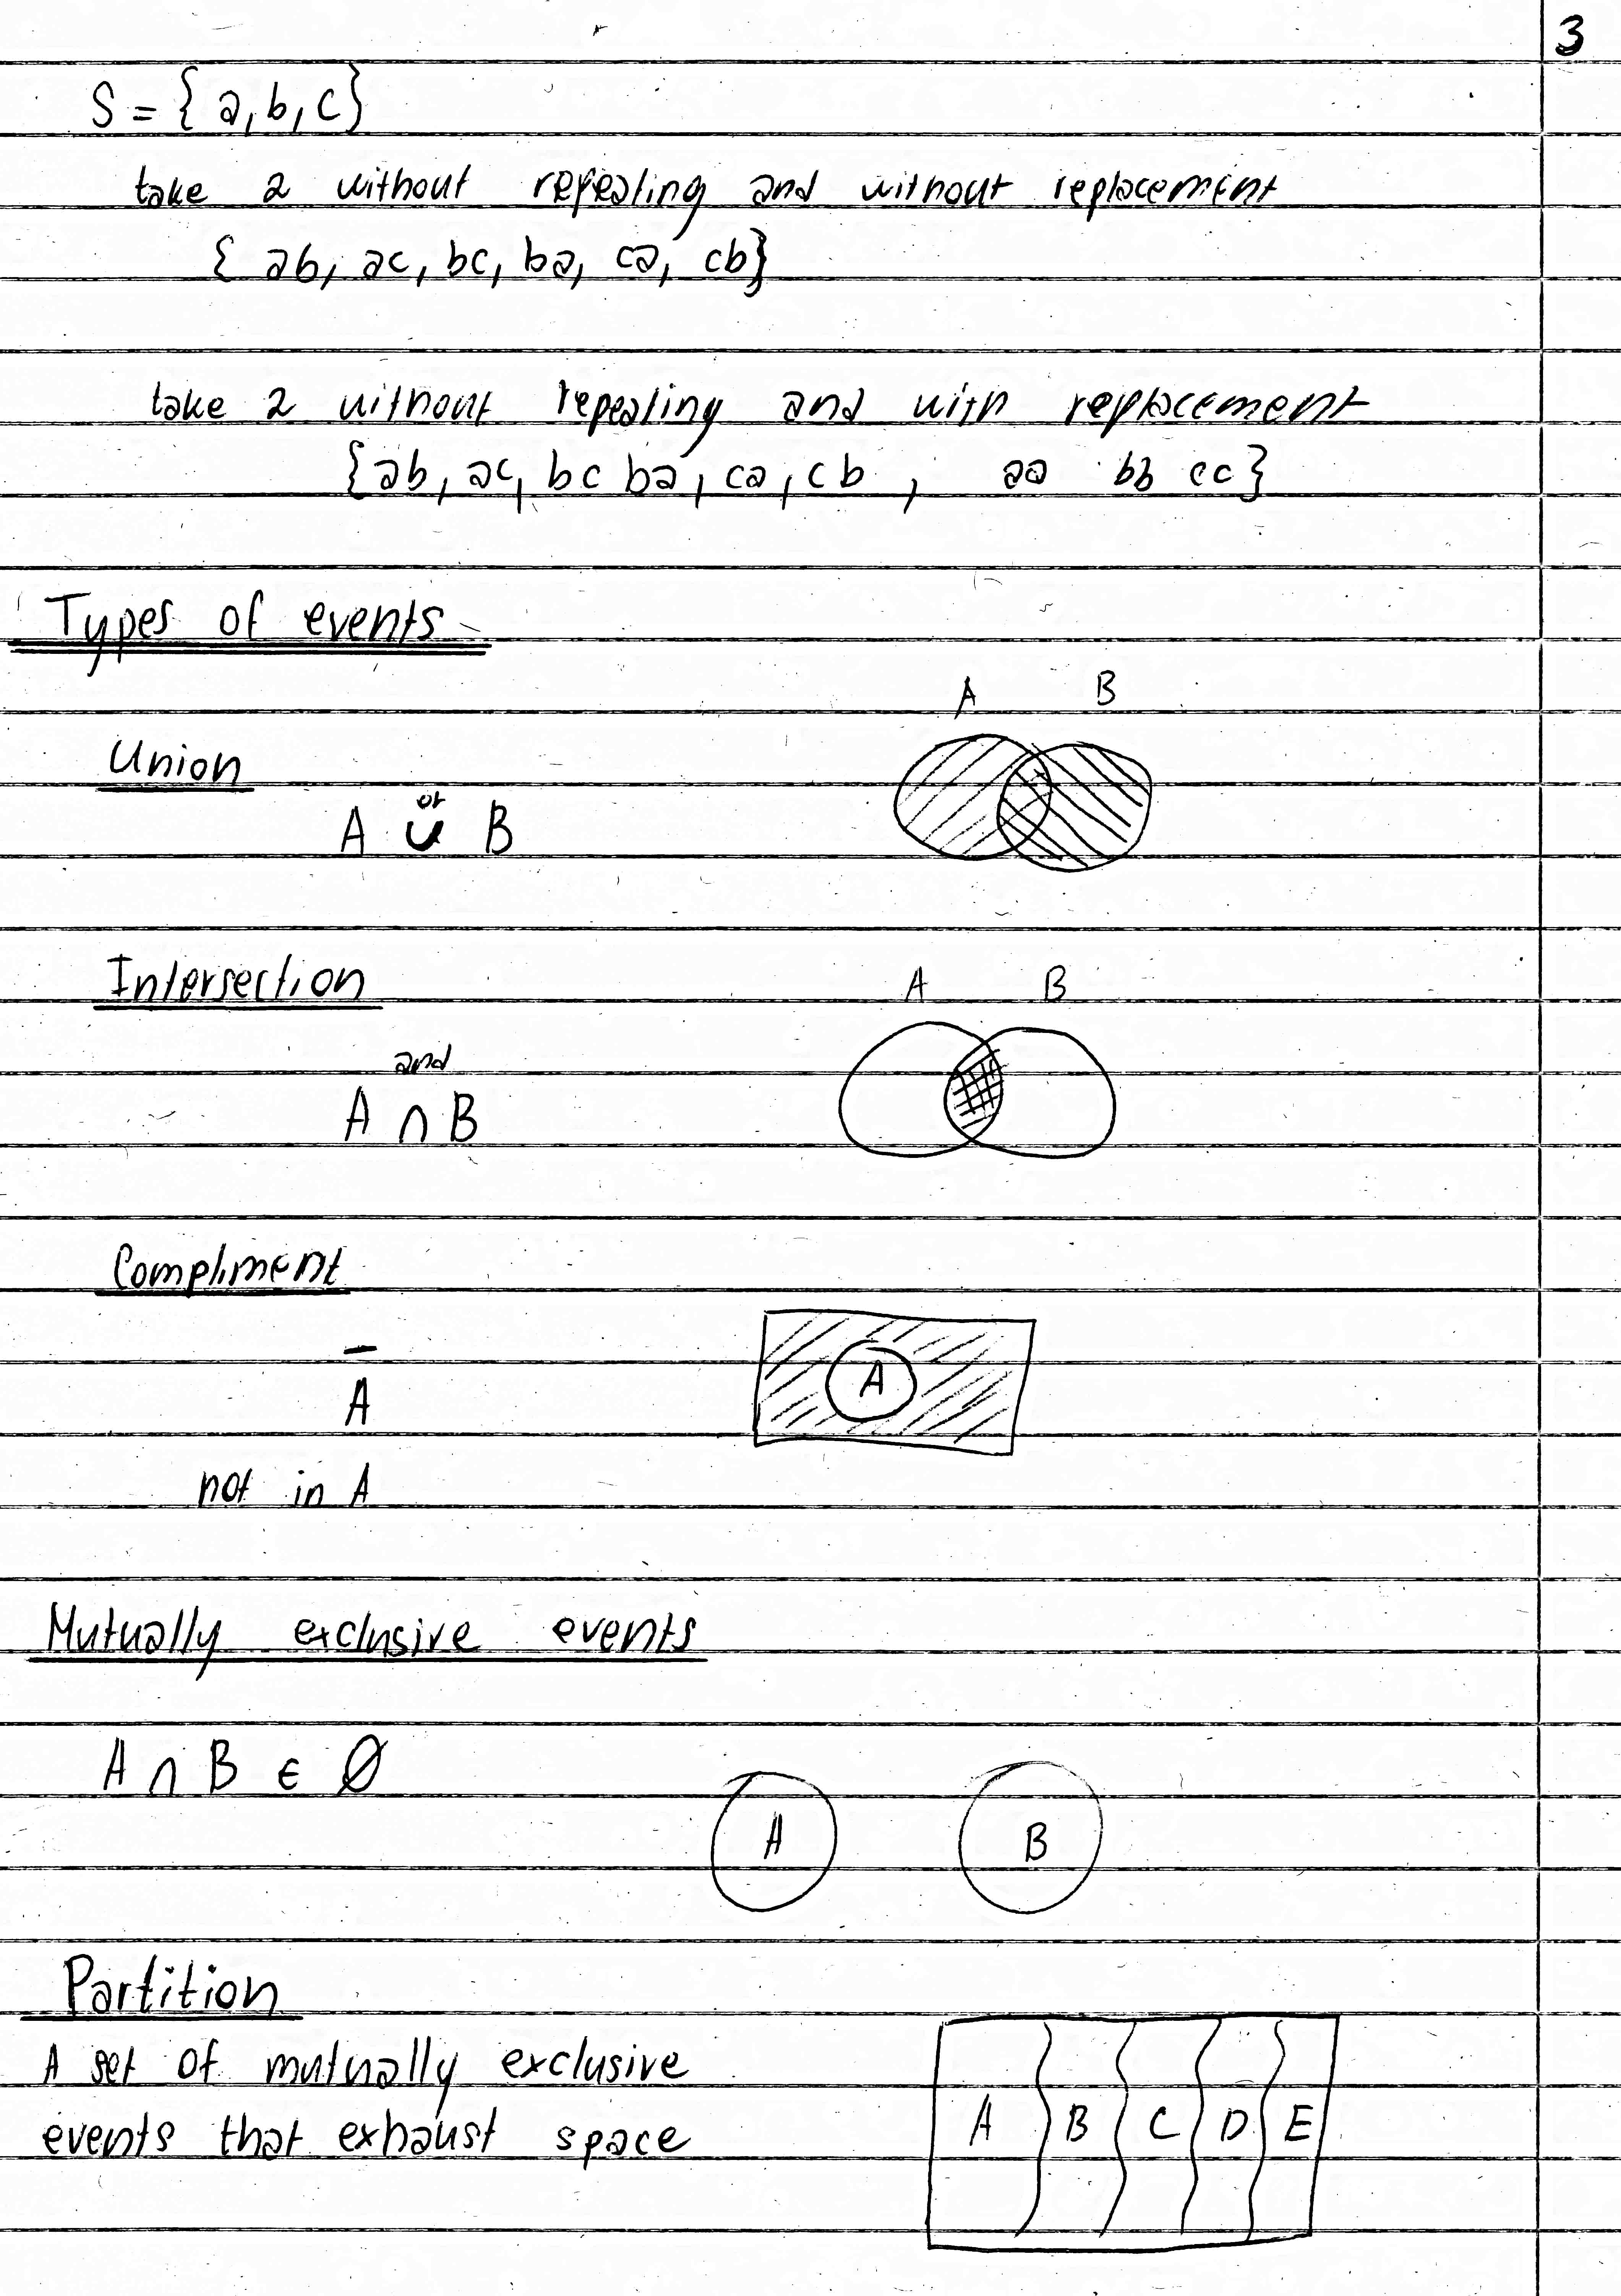 3
S = { a, b, c }
take 2 without repeating and without replacement
{ ab, ac, bc, ba, ca, cb}
take 2 without repeating and with replacement
{ab, ac, bc ba, ca, cb , aa bb cc}
Types of events
A B
Union
or
A ∪ B
Intersection
A B
and
A ∩ B
Compliment
Ā
A
not in A
Mutually exclusive events
A ∩ B ∈ Ø
A B
Partition
A set of mutually exclusive
events that exhaust space
A B C D E